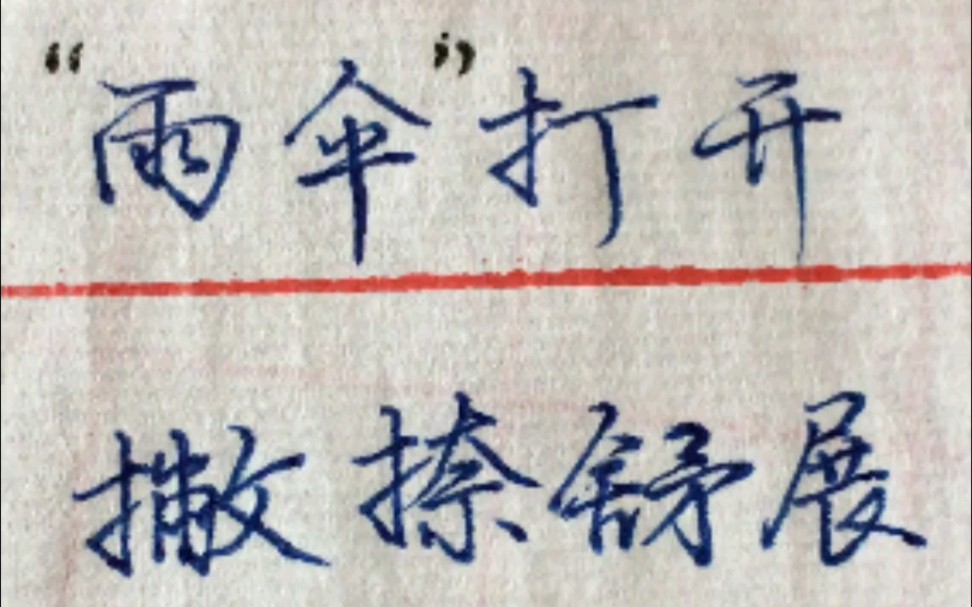 “雨伞”打开
撇捺舒展